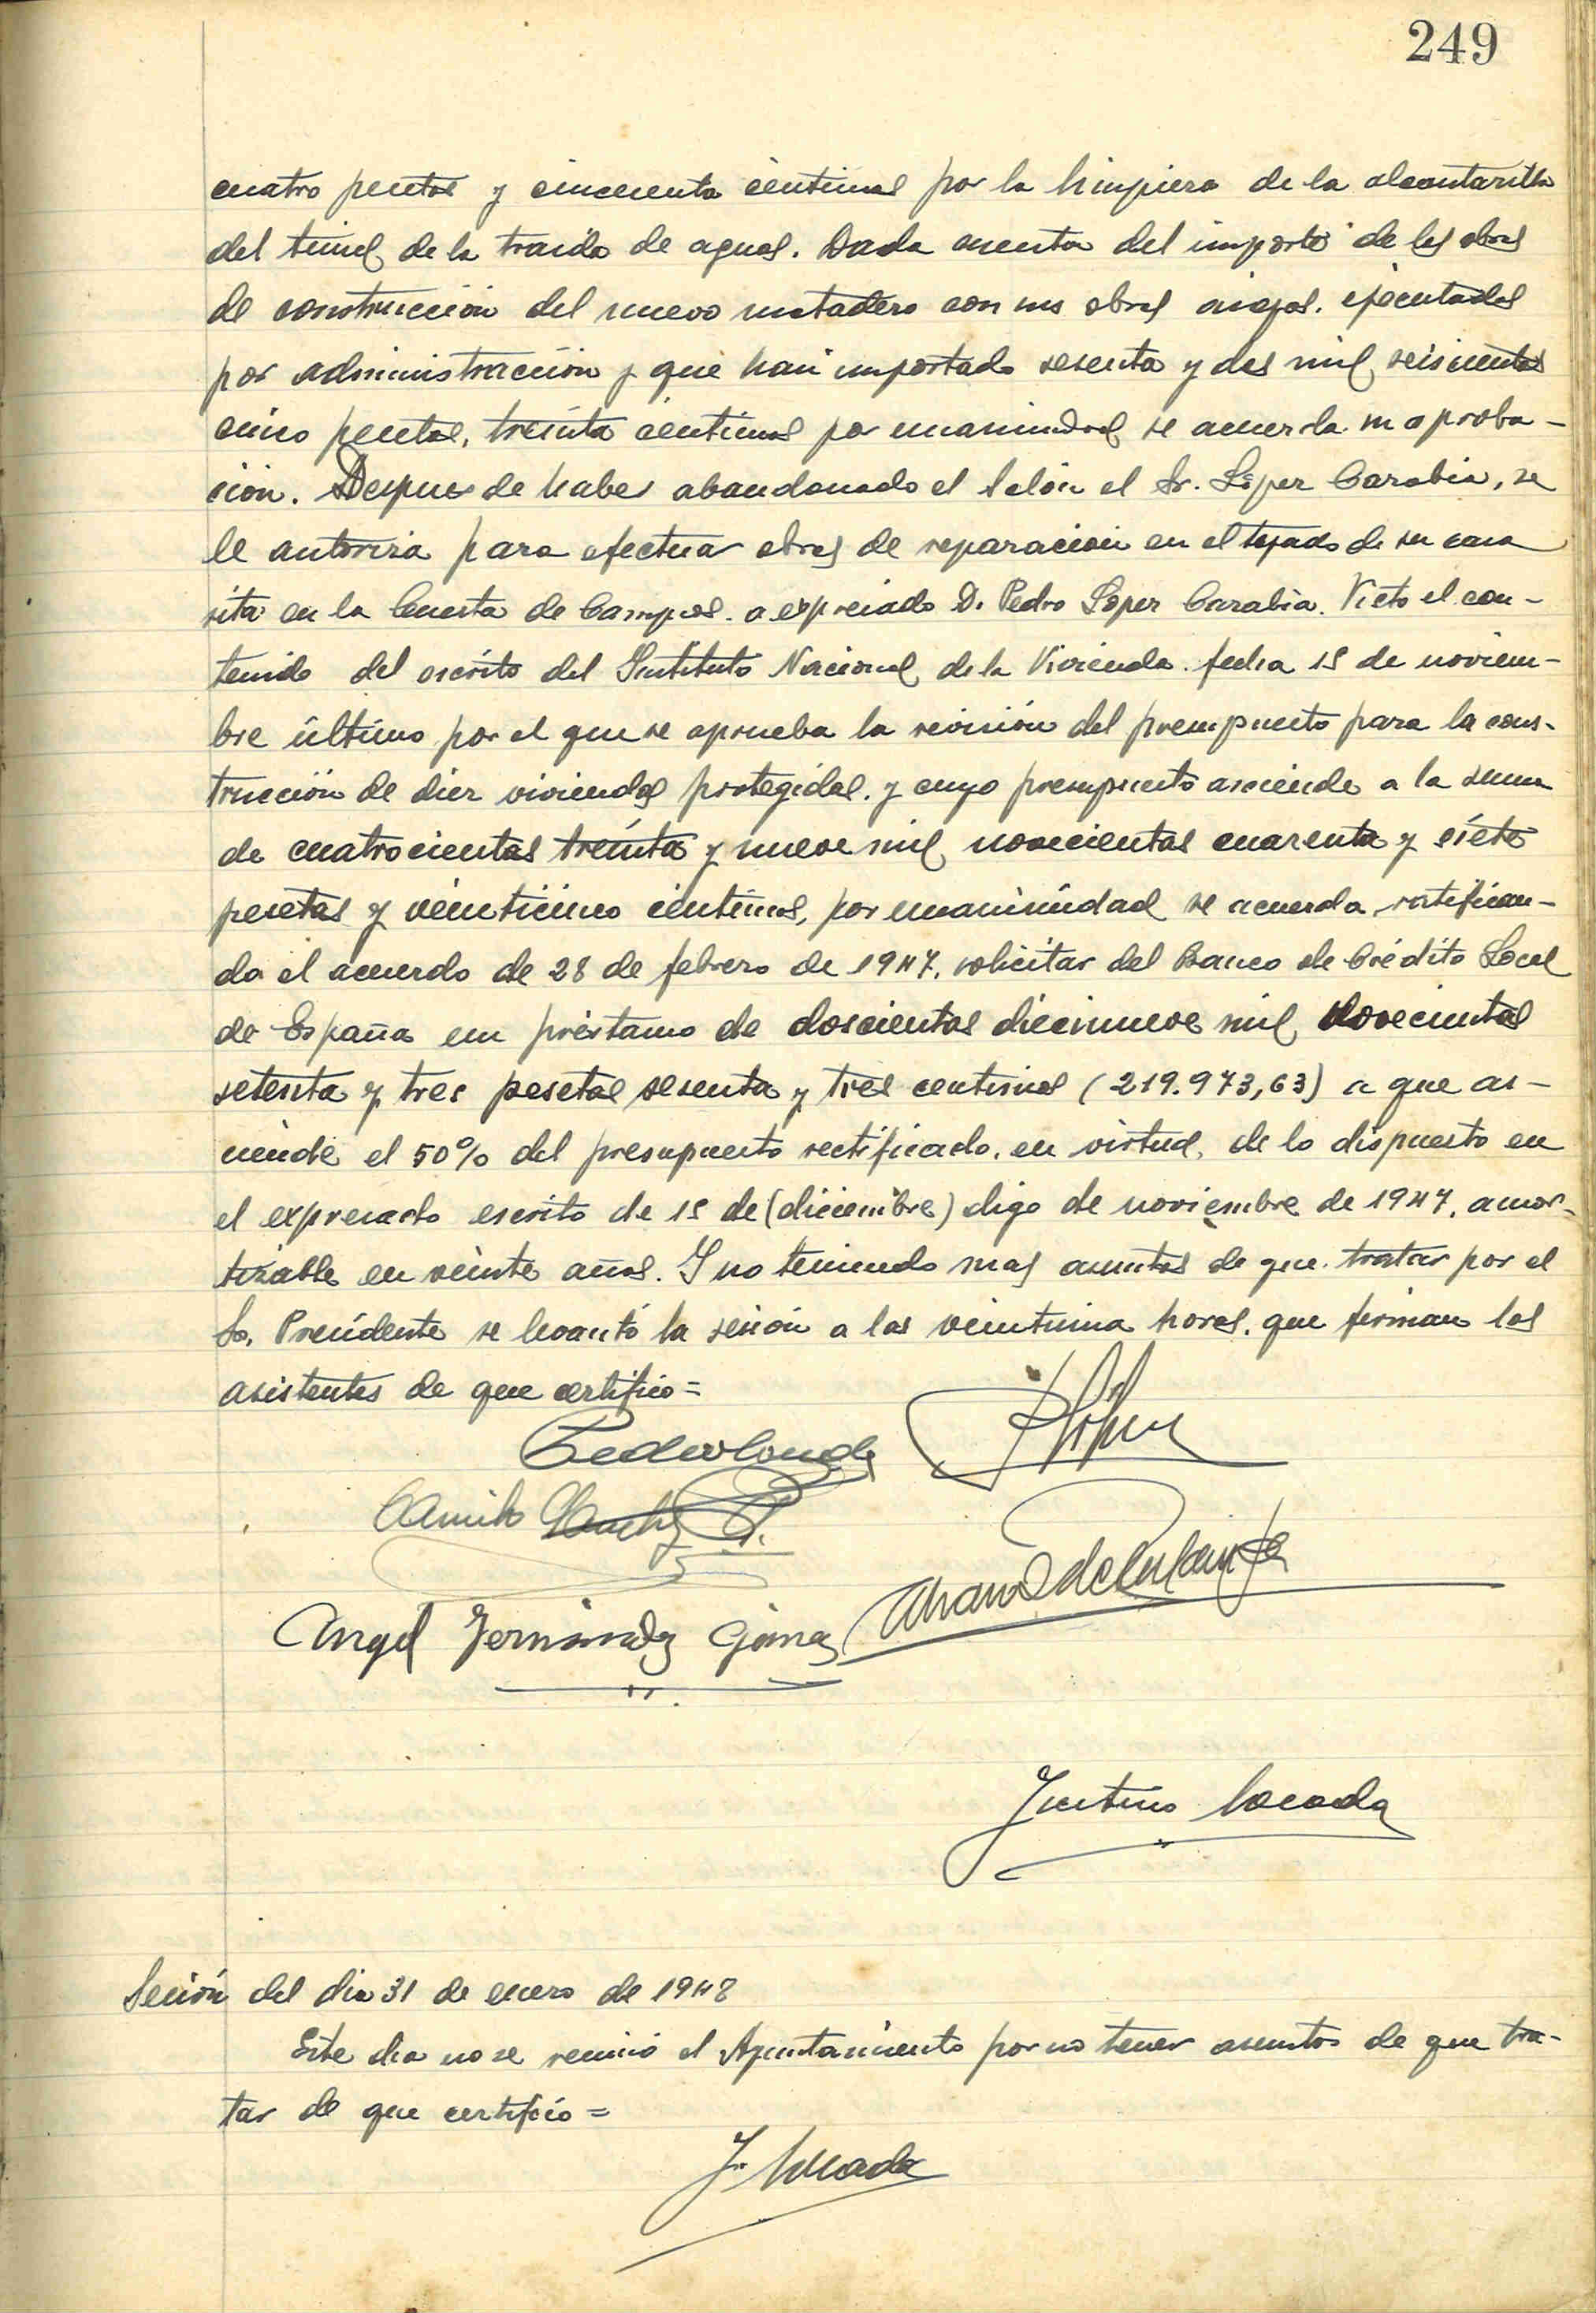 249
cuatro pesetas y cincuenta centimos por la limpieza de la alcantarilla
del túnel de la traida de aguas. Dada cuenta del importe de las obras
de construcción del nuevo matadero con sus obras anejas. ejecutadas
por administración y que han importado sesenta y dos mil seiscientas
cinco pesetas, treinta centimos por unanimidad se acuerda su aproba-
ción. Despues de haber abandonado el salón el Sr. López Carabia, se
le autoriza para efectuar obras de reparación en el tejado de su casa
sita en la Cuesta de Campios. a expresado D. Pedro López Carabia. Visto el con-
tenido del escrito del Instituto Nacional de la Vivienda. fecha 15 de noviem-
bre último por el que se aprueba la revisión del presupuesto para la cons-
trucción de diez viviendas protegidas. y cuyo presupuesto asciende a la suma
de cuatrocientas treinta y nueve mil novecientas cuarenta y siete
pesetas y veinticinco centimos, por unanimidad se acuerda, ratifican-
do el acuerdo de 28 de febrero de 1947, solicitar del Banco de Crédito Local
de España un préstamo de doscientas diecinueve mil novecientas
setenta y tres pesetas sesenta y tres centimos (219.973,63) a que as-
ciende el 50% del presupuesto rectificado. en virtud, de lo dispuesto en
el expresado escrito de 15 de (diciembre) digo de noviembre de 1947, amor-
tizable en veinte años. Y no teniendo mas asuntos de que tratar por el
Sr. Presidente se levantó la sesión a las veintiuna horas. que firman los
asistentes de que certifico=
P López
Camilo Sánchez
Angel Fernández Gómez
Justino Losada
Sesión del dia 31 de enero de 1948
Este dia no se reunió el Ayuntamiento por no tener asuntos de que tra-
tar de que certifico=
J. Losada